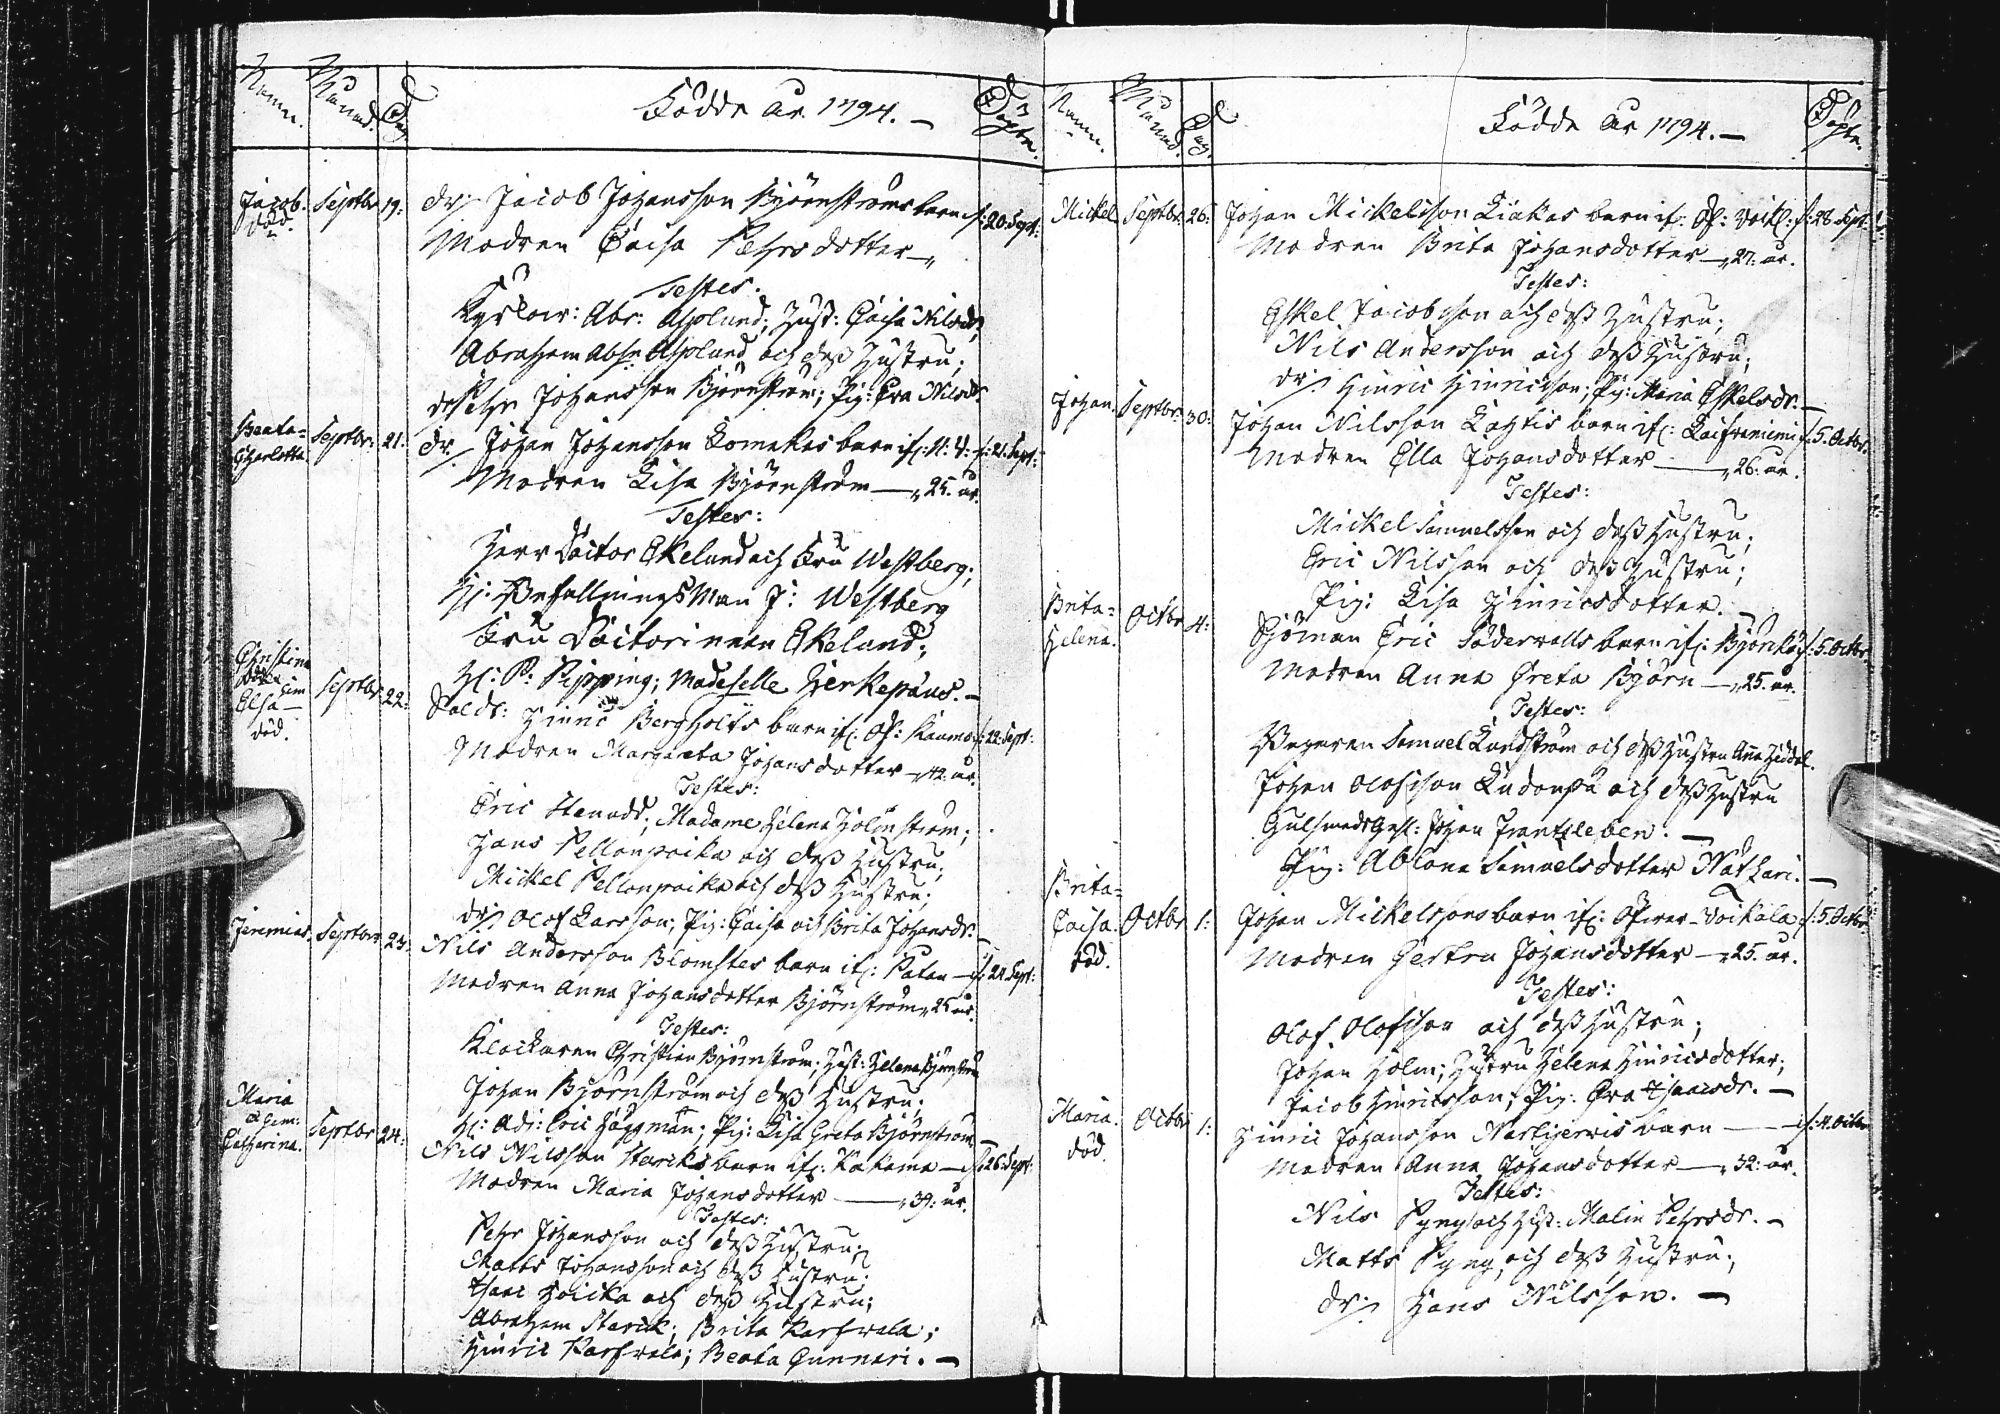 Namn. Månad. Dag Födde År 1794. — Döpte.
Jacob. Septbr 19: dr: Jacob Johansson Björnströms barn d: 20. Sept:
död. Modren Caisa Pehrsdotter —
Testes.
Abr: Asplund; Hust: Caisa Nilsdr;
Abraham Absn Asplund och deß Hustru;
Pehr Johansson Björnström; Pig: Eva Nilsdr.
Beata= Septbr: 21: dr: Johan Johansson Lomakas barn if: N: V: d: 21. Sept:
Charlotta Modren Lisa Björnström —, 25. år.
Testes:
Herr Doctor Ekelund och Fru Westberg;
H: Befallningsman J: Westberg
Fru Doctorinnan Ekelund;
H: P: Pipping; Madeselle Zerkepäus. —
Christina Septbr 22: Sold: Hinric Bergholts barn if: Öf: Raumo d: 22. Sept:
Elsa — Modren Margareta Johansdotter —, 42. år.
död. Testes:
Eric Stenudd; Madame Helena Holmström;
Hans Pellonpoika och deß Hustru;
Mickel Pellonpoika och deß Hustru;
dr: Olof Larsson; Pig: Caisa och Brita Johansdr. —
Jeremias. Septbr 23: Nils Andersson Blomstes barn if: Palan — d: 24. Sept:
Modren Anna Johansdotter Björnström, 25 år.
Testes:
Klockaren Christian Björnström; Hust: Helena Björnström
Johan Björnström och deß Hustru;
H: Adj: Eric Häggman; Pig: Lisa Greta Björnström —
Maria Septbr 24: Nils Nilsson Starcks barn if: Kakama — d: 26. Sept:
Gem: Modren Maria Johansdotter —, 39: år.
Catharina. Testes:
Pehr Johansson och deß Hustru;
Matts Johansson och deß Hustru;
Isaac Hoicka och deß Hustru;
Abraham Starck; Brita Karfwela;
Hinric Karfwela; Beata Gunnari. —
Namn. Månad. Dag. Födde År 1794. — Döpte.
Mickel Septbr: 26: Johan Mickelsson Liakas barn if: Öf: Voik: d: 28. Sept:
Modren Brita Johansdotter —, 27: år.
Testes:
Eskel Jacobsson och deß Hustru;
Nils Andersson och deß Hustru;
dr: Hinric Hinricsson; Pig: Maria Eskelsdr. —
Johan. Septbr: 30: Johan Nilsson Lahtis barn if: Laiframiemi d: 5. Octbr.
Modren Ella Johansdotter —, 26: år.
Testes:
Mickel Samuelsson och deß Hustru;
Eric Nilsson och deß Hustru;
Pig: Lisa Hinricsdotter. —
Brita= Octbr 4: Sjöman Eric Söderwalls barn if: Björkö d: 5. Octbr.
Helena. Modren Anna Greta Björn —, 25. år.
Testes:
Samuel Lundström och deß Hustru Anna
Johan Olofsson Kudonpä och deß Hustru
Gulsmeds Gesl: Johan Frantzleben. —
Pig: Ablona Samuelsdotter Nathari. —
Brita= Octbr 1: Johan Mickelssons barn if: Öfwer-Voikala d: 5. Octbr.
Caisa. Modren Gertru Johansdotter —, 25. år.
död. Testes:
Olof Olofsson och deß Hustru;
Johan Holm; Hustru Helena Hinricsdotter;
Jacob Hinricsson; Pig: Eva Isaacsdr. —
Maria. Octbr 1: Hinric Johansson Nartijerwis barn — d: 4. Octbr
död. Modren Anna Johansdotter —, 32: år.
Testes:
Nils Pyny och Hust: Malin Pehrsdr. —
Matts Pyny, och deß Hustru;
dr: Hans Nilsson. —